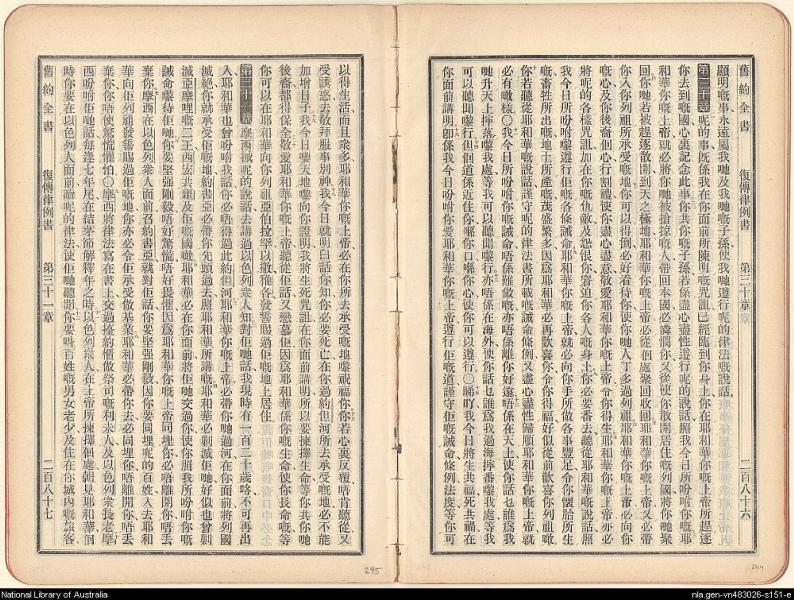 舊約全書 復傳律例書 第三十章 二百八十六
顯明嘅事永遠屬我哋及我哋嘅子孫使我哋遵行呢的律法嘅說話
第三十章 呢的事旣係我在你面前所陳明嘅咒詛已經臨到你身上你在耶和華你嘅上帝所趕逐
你去到嘅國心裏記念此事你共你嘅子孫若係盡心盡性遵行呢的說話照我今日所吩咐你嘅耶
和華你嘅上帝就必將你哋被擄掠嘅人帶回本國必憐憫你又從你散開居住嘅列國將你哋聚
回你哋若被趕逐散開到天之極地耶和華你嘅上帝必從個處聚回收回耶和華你嘅上帝又必帶
你入你列祖所承受嘅地你可以得倒必好看待你使你哋人丁多過列祖耶和華你嘅上帝必向你
嘅心及你後裔個心行割禮使你盡心盡意敬愛耶和華你嘅上帝令你得生耶和華你嘅上帝亦必
將呢的各樣咒詛加在你嘅仇敵及怨恨你窘迫你各人嘅身上你必要番去聽從耶和華嘅說話照
我今日所吩咐嚟遵行佢嘅各條誡命耶和華你嘅上帝就必向你手所做各事豐足令你懷胎所生
嘅畜牲所出嘅地土所產嘅茂盛繁多因爲耶和華必再歡喜你令你得福好似從前歡喜你列祖噉
你若聽從耶和華你上帝說話謹守呢的律法書所載嘅誡命條例又盡心盡性歸順耶和華你嘅上帝就
必有噉樣〇我今日所吩咐你嘅誡命唔係難做嘅亦唔係離你好遠唔係在天上使你話乜誰爲我
哋升天上攞落嚟我處等我可以聽聞嚟行亦唔係在海外使你話乜誰爲我過海攞番嚟我處等我
可以聽聞嚟行但個道係近住你喺你口喺你心使你可以遵行〇睇吓我今日將生共福死共禍在
你面前講明卽係我今日吩咐你愛耶和華你嘅上帝遵行佢嘅道謹守佢嘅誡命條例法度等你可
以得生活而且衆多耶和華你嘅上帝必在你所去承受嘅地嚟祝福你你若心裏反覆唔肯聽從又
受誘惑去敬拜服事別神我今日就明白話你知你必要死亡在你過約但河所去承受嘅地必不能
加增日子我今日嚟天地嚟向你證明我將生死咒詛在你面前講明所以要揀擇生命等你共你嘅
後裔都得保全敬愛耶和華你嘅上帝聽從佢話又戀慕佢因爲耶和華係你嘅生命使你長命嘅等
你可以在耶和華向你列祖亞伯拉罕以撒雅各發誓賜過佢嘅地上居住
第三十一章 摩西將呢的說話去講過以色列衆人知對佢哋話我現時有一百二十歲咯不可再出
入耶和華也曾吩咐我話你必唔得過此約但河耶和華你嘅上帝必帶你哋過河在你面前將列國
滅絕你就承受佢嘅地約書亞必帶你先頭過去照耶和華所講嘅耶和華必剿滅佢哋好似也曾剿
滅亞摩哩嘅二王西宏共噩及佢嘅國噉耶和華必在你面前將佢哋交過你使你照我所吩咐你嘅
誡命嚟待佢哋你要堅强剛毅唔好驚慌唔好畏懼因爲耶和華你嘅上帝同埋你必唔離開你唔丟
棄你摩西在以色列衆人面前召約書亞就對佢話你要堅强剛毅因你要同埋呢的百姓入去耶和
華向佢列祖發誓賜過佢嘅地你亦必令佢承受做基業耶和華必帶你去必同埋你唔離開你唔丟
棄你你唔使驚慌懼怕〇摩西將律法寫在書上交過擡約櫃做祭司嘅利未人及以色列衆長老摩
西吩咐佢哋話每逢七年尾在結茅節解釋年之時以色列衆人在主帝所揀擇個處朝見耶和華個
時你要在以色列人面前讀呢的律法使佢哋聽聞你要嘅百姓嘅男女老少及住在你城內嘅旅客
舊約全書 復傳律例書 第三十一章 二百八十七
295
294
National Library of Australia
nla.gen-vn483026-s151-e